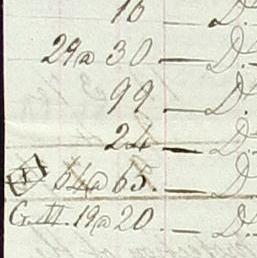 16 — D.
29 a 30 — D.
99 — D.
24 — D
64 a 65. — D
19 a 20. — D.